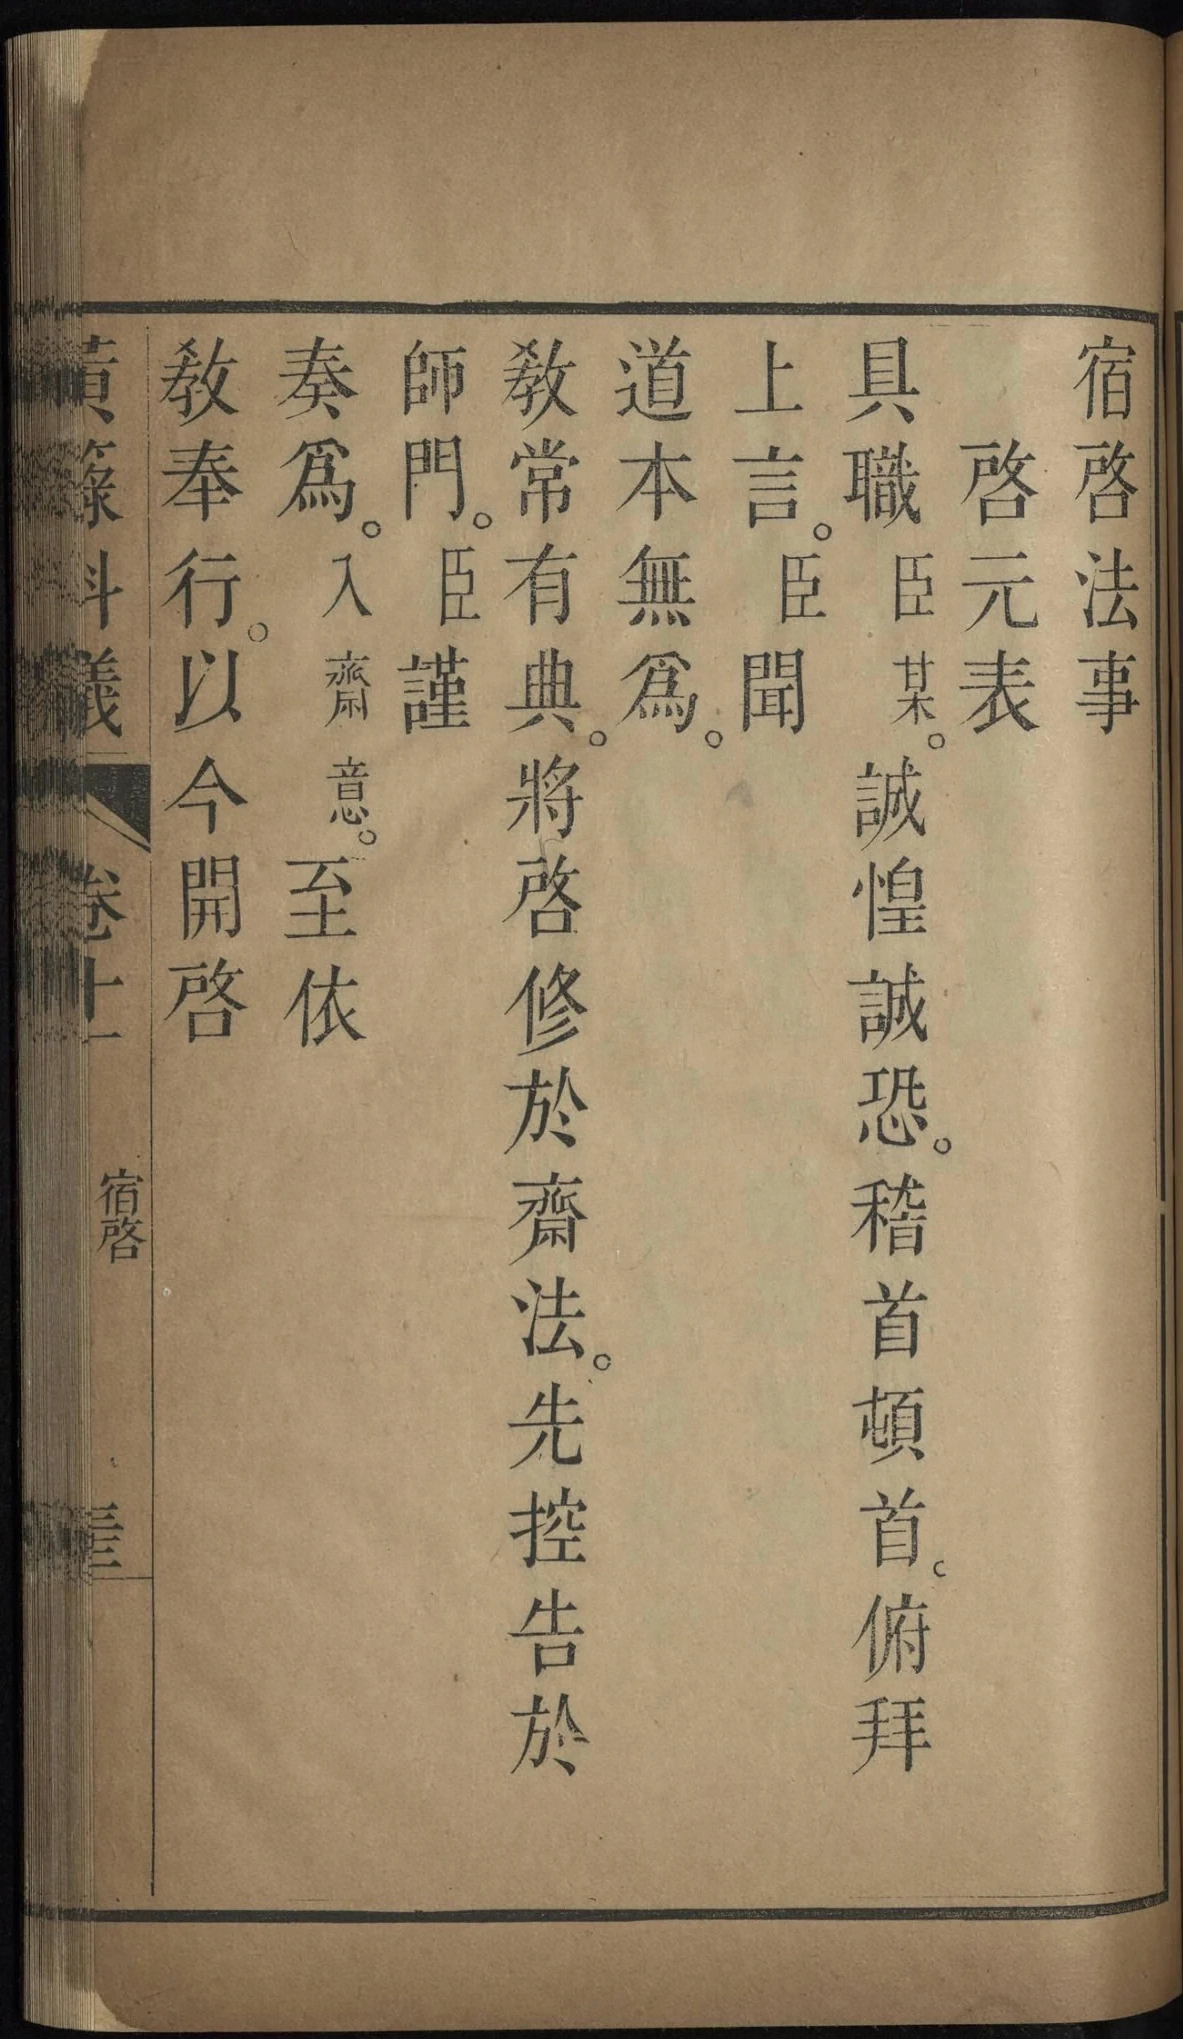 宿啓法事
啓元表
具職臣某。誠惶誠恐。稽首頓首。俯拜
上言。臣聞
道本無爲。
敎常有典。將啓修於齋法。先控告於
師門。臣謹
奏爲。入齋意。至依
敎奉行。以今開啓
黃籙科儀 卷十一 宿啓